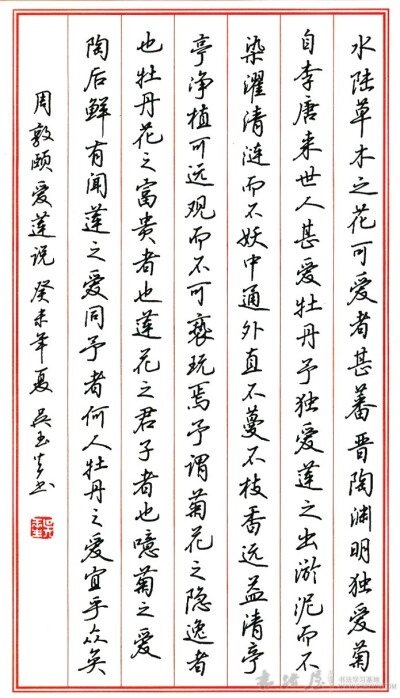 水陆草木之花可爱者甚蕃晋陶渊明独爱菊
自李唐来世人甚爱牡丹予独爱莲之出淤泥而不
染濯清涟而不妖中通外直不蔓不枝香远益清亭
亭净植可远观而不可亵玩焉予谓菊花之隐逸者
也牡丹花之富贵者也莲花之君子者也噫菊之爱
陶后鲜有闻莲之爱同予者何人牡丹之爱宜乎众矣
周敦颐爱莲说癸未年夏吴玉生书